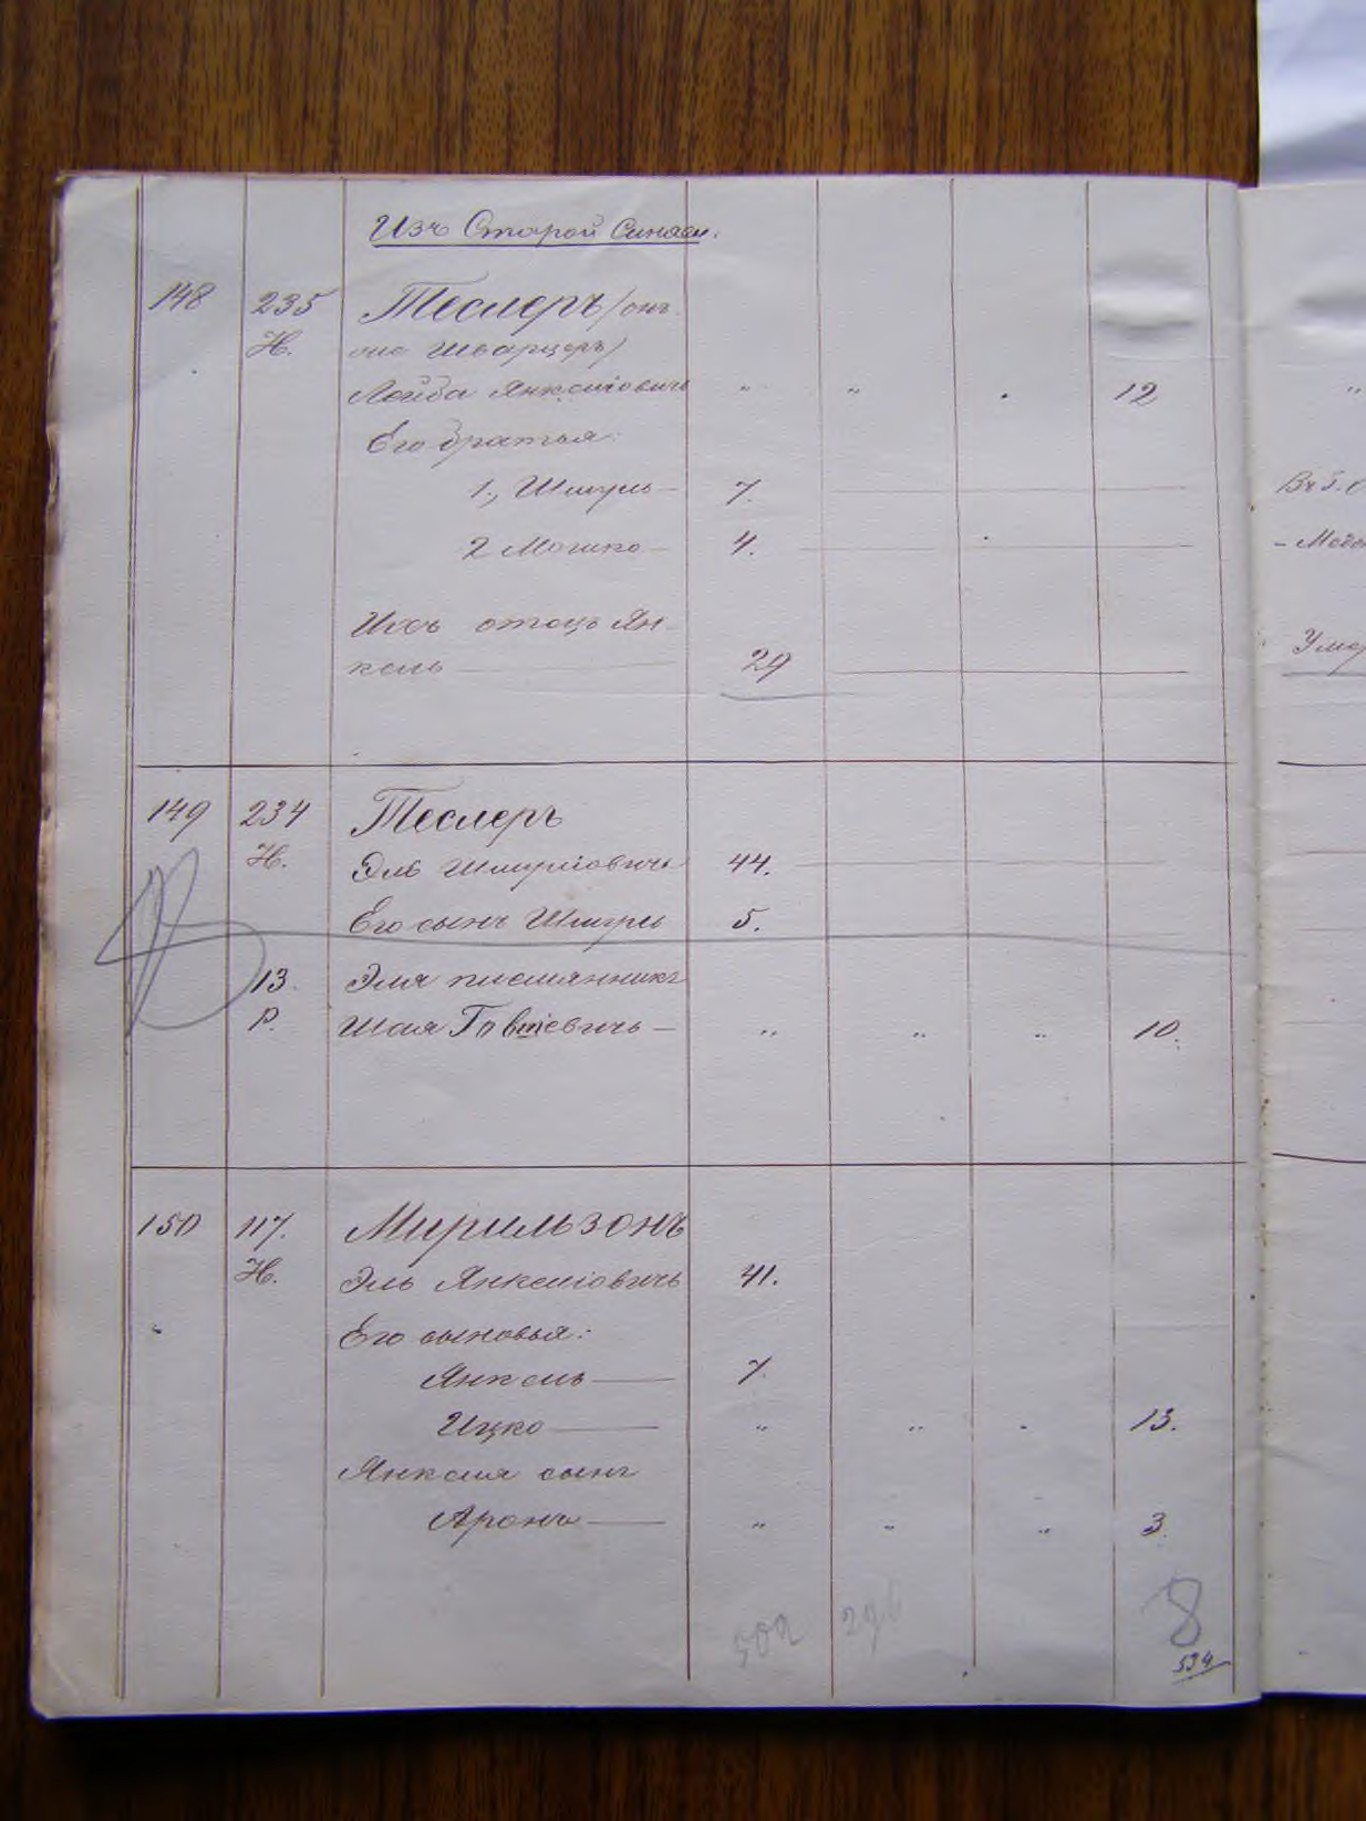 Изъ Старой Синявы.
148 235 Теслеръ /онъ
Н. же Шварцеръ/
Лейба Янкеліовичъ " " . 12 "
Его братья:
1., Шмуль — 7. Въ г. о
2 Мошко — 4. -
Ихъ отецъ Ян-
кель — 29 Умер
149 234 Теслеръ
Н. Эль Шмуліовичъ 44.
Его сынъ Шмуль 5.
13. Эля племянникъ
Р. Шая Говшіевичъ — " " " 10.
150 117. Мирильзонъ
Н. Эль Янкеліовичъ 41.
Его сыновья:
Янкель — 7.
Ицко — " " " 13.
Янкеля сынъ
Аронъ — " " " 3.
502 296 8
534